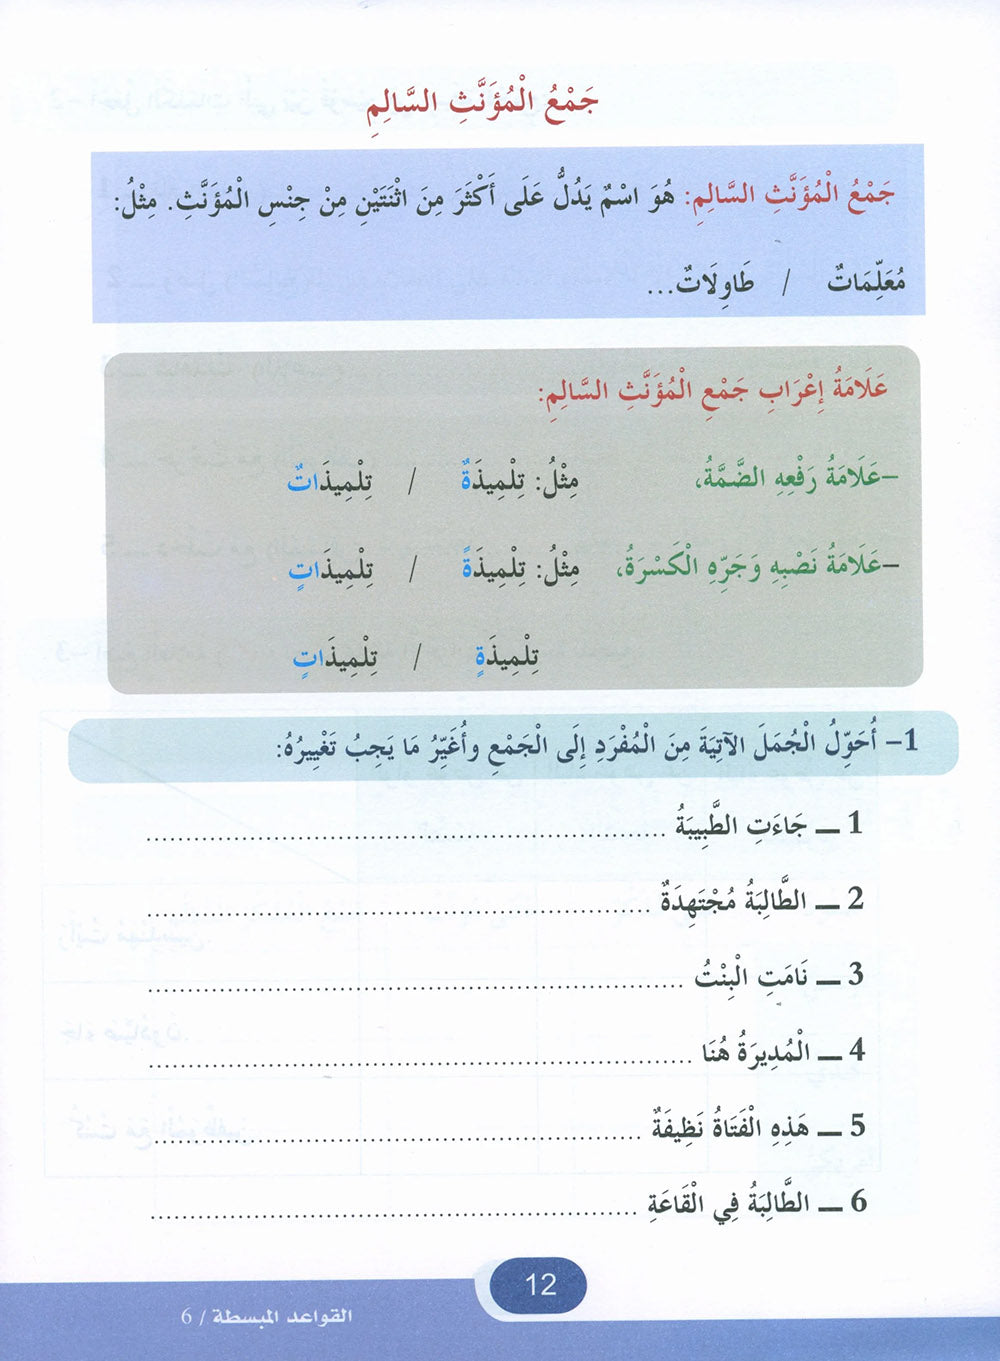 جَمْعُ الْمُؤَنَّثِ السَّالِمِ
جَمْعُ الْمُؤَنَّثِ السَّالِمِ: هُوَ اسْمٌ يَدُلُّ عَلَى أَكْثَرَ مِنَ اثْنَتَيْنِ مِنْ جِنْسِ الْمُؤَنَّثِ. مِثْلُ:
مُعَلِّمَاتٌ / طَاوِلَاتٌ...
عَلَامَةُ إِعْرَابِ جَمْعِ الْمُؤَنَّثِ السَّالِمِ:
-عَلَامَةُ رَفْعِهِ الضَّمَّةُ، مِثْلُ: تِلْمِيذَةٌ / تِلْمِيذَاتٌ
-عَلَامَةُ نَصْبِهِ وَجَرِّهِ الْكَسْرَةُ، مِثْلُ: تِلْمِيذَةً / تِلْمِيذَاتٍ
تِلْمِيذَةٍ / تِلْمِيذَاتٍ
1- أُحَوِّلُ الْجُمَلَ الآتِيَةَ مِنَ الْمُفْرَدِ إِلَى الْجَمْعِ وأُغَيِّرُ مَا يَجِبُ تَغْيِيرُهُ:
1 ـ جَاءَتِ الطَّبِيبَةُ ................................................
2 ـ الطَّالِبَةُ مُجْتَهِدَةٌ ................................................
3 ـ نَامَتِ الْبِنْتُ ................................................
4 ـ الْمُدِيرَةُ هُنَا ................................................
5 ـ هَذِهِ الْفَتَاةُ نَظِيفَةٌ ................................................
6 ـ الطَّالِبَةُ فِي الْقَاعَةِ ................................................
12
القواعد المبسطة / 6